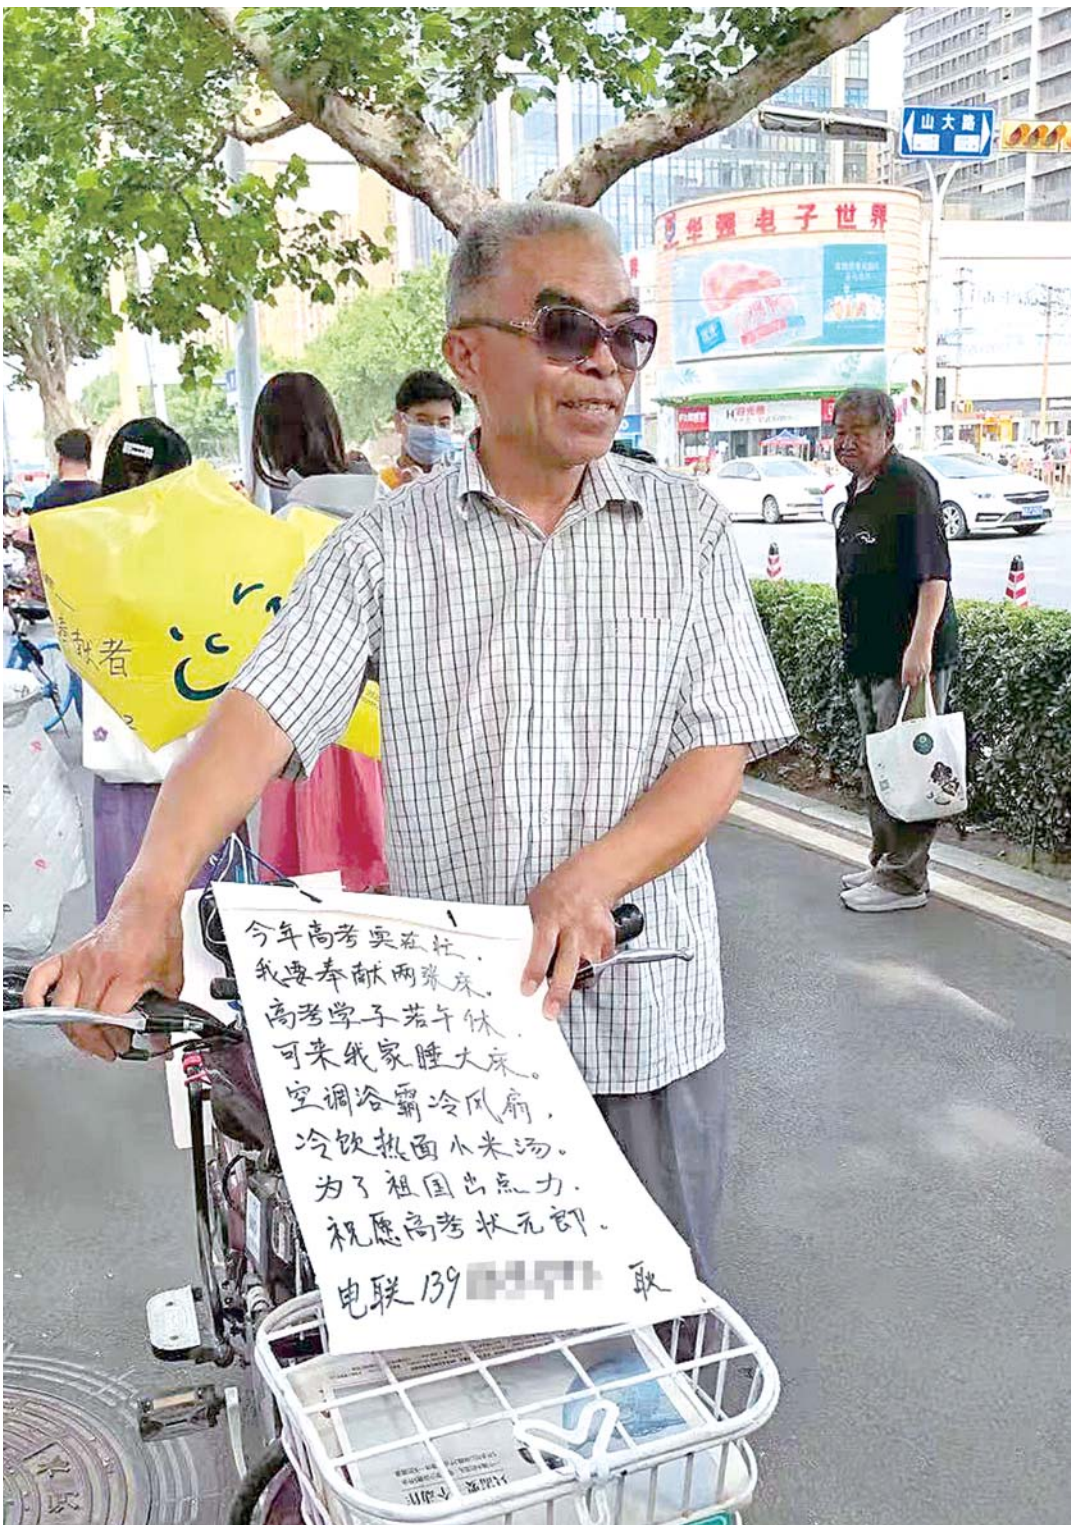 山大路
华强电子世界
奉献者
今年高考实在忙，
我要奉献两张床。
高考学子若午休，
可来我家睡大床。
空调浴霸冷风扇，
冷饮热面小米汤。
为了祖国出点力，
祝愿高考状元郎。
电联139 耿